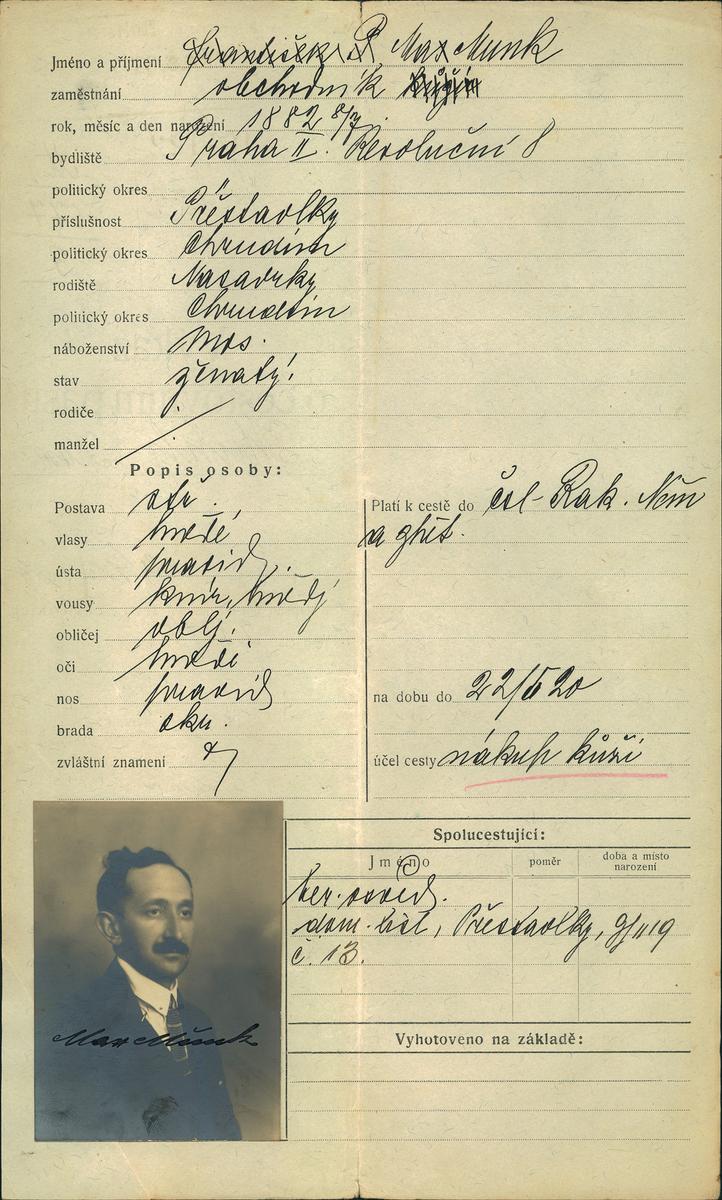 Jméno a příjmení Max Munk
zaměstnání obchodník
rok, měsíc a den narození 1882 8/7
bydliště Praha II. Revoluční 8
politický okres "
příslušnost Přestavlky
politický okres Chrudim
rodiště Nasavrky
politický okres Chrudim
náboženství mos.
stav ženatý
rodiče
manžel
Popis osoby:
Postava stř.
vlasy hnědé
ústa pravid.
vousy knír, hnědý
obličej oblý
oči hnědé
nos pravid
brada
zvláštní znamení
Platí k cestě do čsl- Rak. Něm
a zpět.
na dobu do 22/5 20
účel cesty nákup kůží
Spolucestující:
Jméno poměr doba a místo narození
ber. osvěd.
dom. list, Přestavlky, 9/11 19
č. 13.
Vyhotoveno na základě:
Max Munk